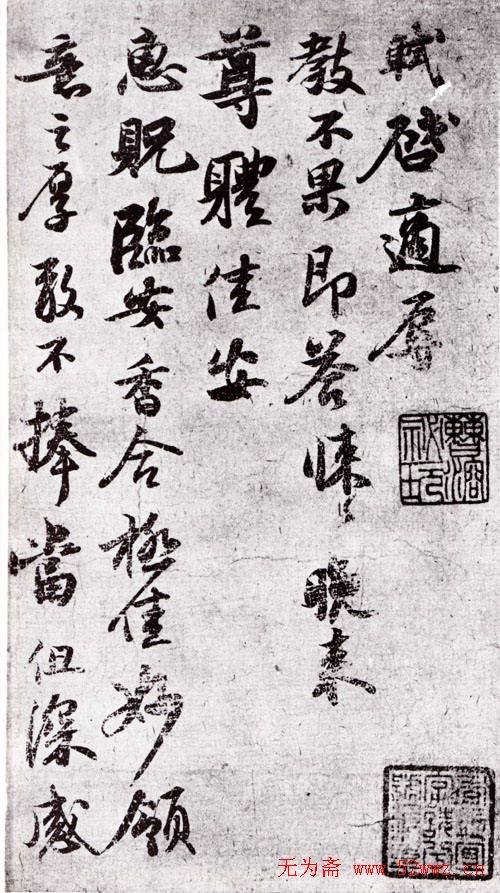 軾啓適辱
教不果即答悚〻晚来
尊體佳安
惠貺臨安香合極佳妙領
意之厚敢不捧當但深感
无为斋 www.52wwz.cn